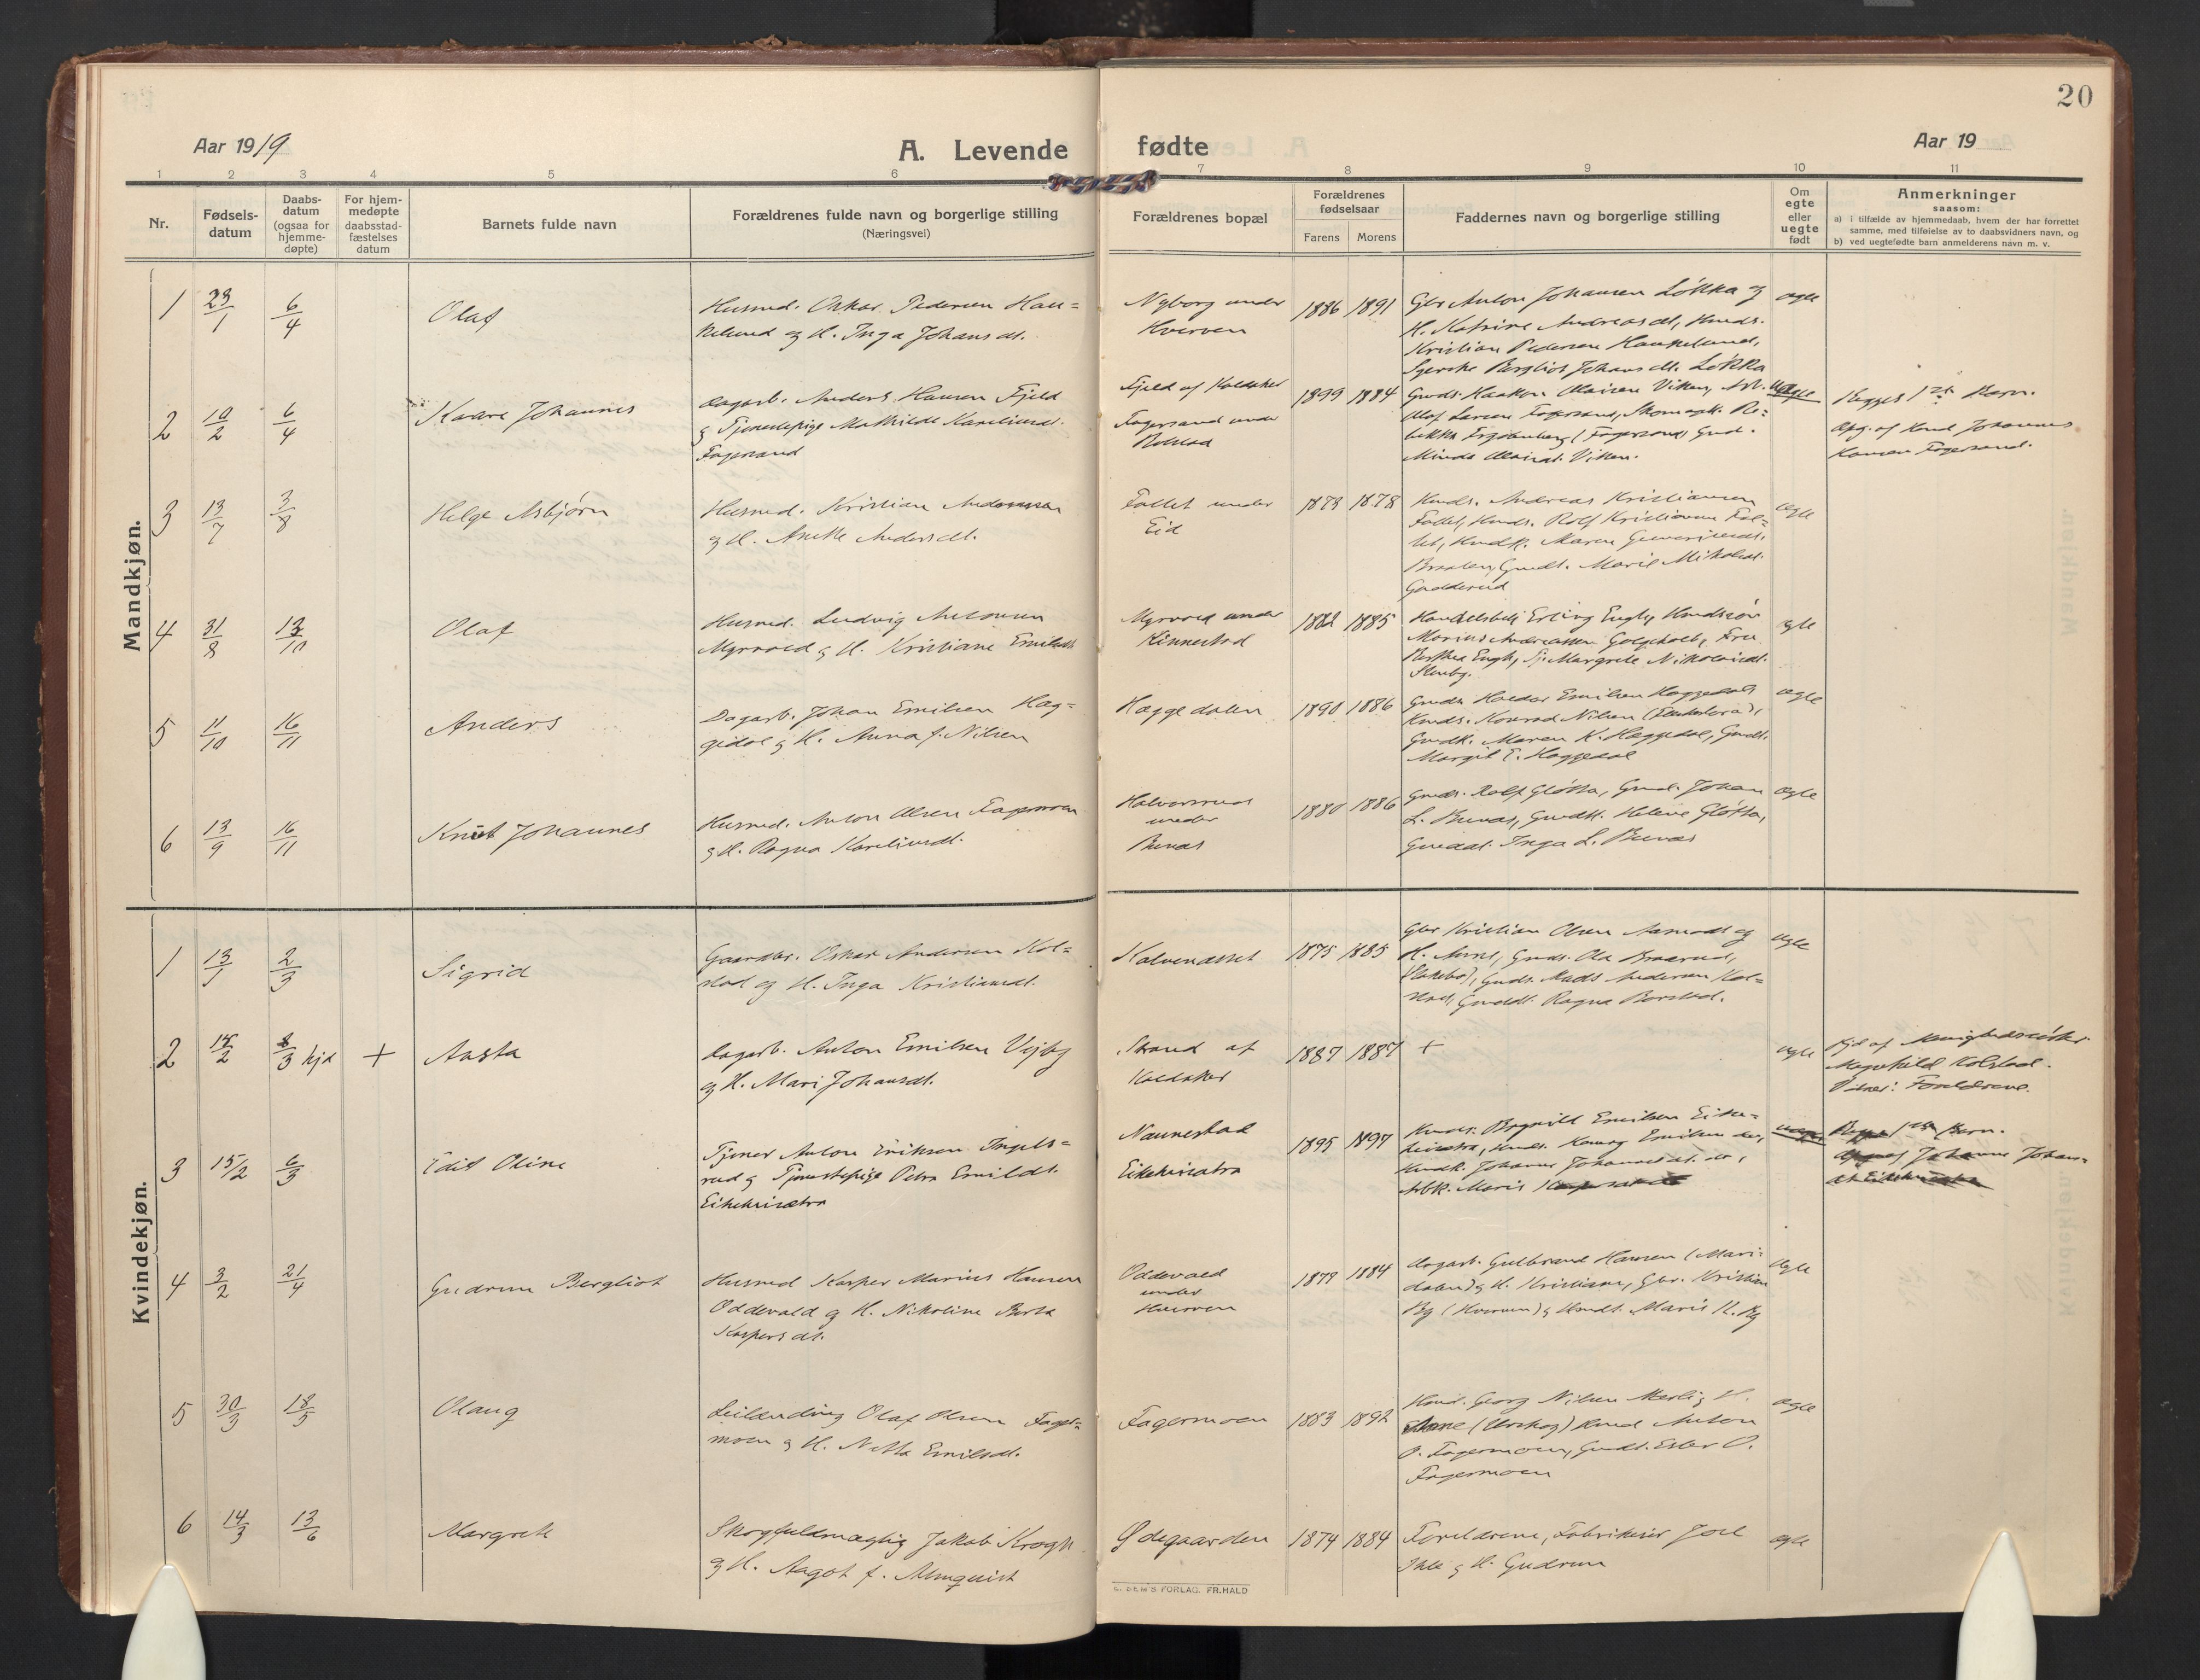 20
Aar 1919
A. Levende
fødte
Aar 19
1 2 3 4 5 6 7 8 9 10 11
Nr.
Fødsels-
datum
Daabs-
datum
(ogsaa for
hjemme-
døpte)
For hjem-
medøpte
daabsstad-
fæstelses
datum
Barnets fulde navn
Forældrenes fulde navn og borgerlige stilling
(Næringsvei)
Forældrenes bopæl
Forældrenes
fødselsaar
Farens Morens
Faddernes navn og borgerlige stilling
Om
egte
eller
uegte
født
Anmerkninger
saasom:
a) i tilfælde av hjemmedaab, hvem der har forrettet
samme, med tilføielse av to daabsvidners navn, og
b) ved uegtefødte barn anmelderens navn m. v.
Mandkjøn.
1 23/1 6/4 Olaf
Husmd. Oskar Pedersen Hau-
kelund og H. Inga Johansdt.
Nyborg under
Hverven
1886 1891
Gbr Anton Johansen Løkka og
H. Katrine Andreasdt, Kmds.
Kristian Pedersen Haukelund,
Syerske Bergliot Johansdt. Løkka
egte
2 10/2 6/4 Kaare Johannes
Dagarb. Anders Hansen Fjeld
og Tjenestepige Mathilde Kareliusdt.
Fagersand
Fjeld af Holdaker
Fagersand under
Bolstad
1899 1884
Gmds. Haakon Olaisen Viken, Arb.
Olaf Larsen Fagersand,
Fagersand, Gmd.
Minda Olaisdt. Viken.
uegte
Begges 1ste Barn.
Opg. af Kmd Johannes
Hansen Fagersand.
3 13/7 3/8 Helge Asbjørn
Husmd. Kristian Andersen
og H. Anette Andersdt.
Fallet under
Eid
1873 1878
Kmds. Andreas Kristiansen
Fallet, Kmds. Rolf Kristiansen Fal-
let, Kmdk. Maren
Braaten, Gmdt. Marie Mikalsdt.
Gudderud
egte
4 31/8 13/10 Olaf
Husmd. Ludvig Antonsen
Myrvold og H. Kristiane Emilsdt.
Myrvold under
Kinnestad
1882 1885
Handelsbetj. Erling Engh, Kmdssøn
Marius Andreassen Galgeholt, Fru
Berthea Engh, Tj. Margrete Nikolaisdt.
Stenby.
egte
5 11/10 16/11 Anders
Dagarb. Johan Emilsen Hæg-
gedal og H. Anna f. Nilsen
Hæggedalen
1890 1886
Gmds. Haldor Emilsen Hæggedal,
Kmds. Konrad Nilsen
Gmdk. Maren K. Hæggedal, Gmdt.
Margit E. Hæggedal
egte
6 13/9 16/11 Knut Johannes
Husmd. Anton Olsen Fagermoen
og H. Ragna Kareliusdt.
Halvorsrud
under
Bunæs
1880 1886
Gmds. Rolf Gløtta, Gmd. Johan
L. Bunæs, Gmdk. Helene Gløtta,
Gmddt. Inga L. Bunæs
egte
Kvindekjøn.
1 13/1 2/3 Sigrid
Gaardbr. Oskar Andersen Kol-
stad og H. Inga Kristiansdt.
Kalveraasset
1875 1885
Gbr Kristian Olsen Aamodt og
H. Anne, Gmds. Ola Braarud,
Gmds. Mads Andersen Kol-
stad, Gmddt. Ragna Borstad.
egte
2 15/2 8/3 hjd + Aasta
Dagarb. Anton Emilsen Vejby
og H. Mari Johansdt.
Strand af
Holdaker
1887 1887 + egte
Hjd af Menighedssøster
Magnhild Kolstad.
Vidner: Foreldrene.
3 15/2 6/3 Edit Oline
Tjener Anton Eriksen Ingels-
rud og Tjenestepige Petra Emilsdt.
Eikekrisætra
Nannestad
Eikekrisætra
1895 1897
Kmds. Bogvild Emilsen Eike-
krisætra, Kmds. Konrog Emilsen do,
Kmdk. Johanne Johannesdt. do,
Arbk. Maris
uegte
Begges 1ste Barn.
Opg. af Johanne Johans-
dt Eikekrisætra
4 3/2 21/4 Gudrun Bergliot
Husmd Kasper Marius Hansen
Oddevald og H. Nikoline Berta
Kaspersdt.
Oddevald
under
Hverven
1879 1884
Dagarb. Gulbrand Hansen (Mari-
dalen) og H. Kristiane, Gbr. Kristian
By (Hverven) og Kmdt. Maris K. By
egte
5 30/3 18/5 Olaug
Leilænding Olaf Olsen Fager-
moen og H. Netta Emilsdt.
Fagermoen
1883 1892
Kmd. Georg Nilsen Merli og H.
Anne (Urskog) Kmd Anton
O. Fagermoen, Gmdt. Ester O.
Fagermoen
egte
6 14/3 13/6 Margrete
Skogfuldmægtig Jakob Krogh
og H. Aagot f. Almquist
Ødegaarden
1874 1884
Foreldrene, Fabrikeier Joel
Ihle og H. Gudrun
egte
E. SEM'S FORLAG. FR.HALD